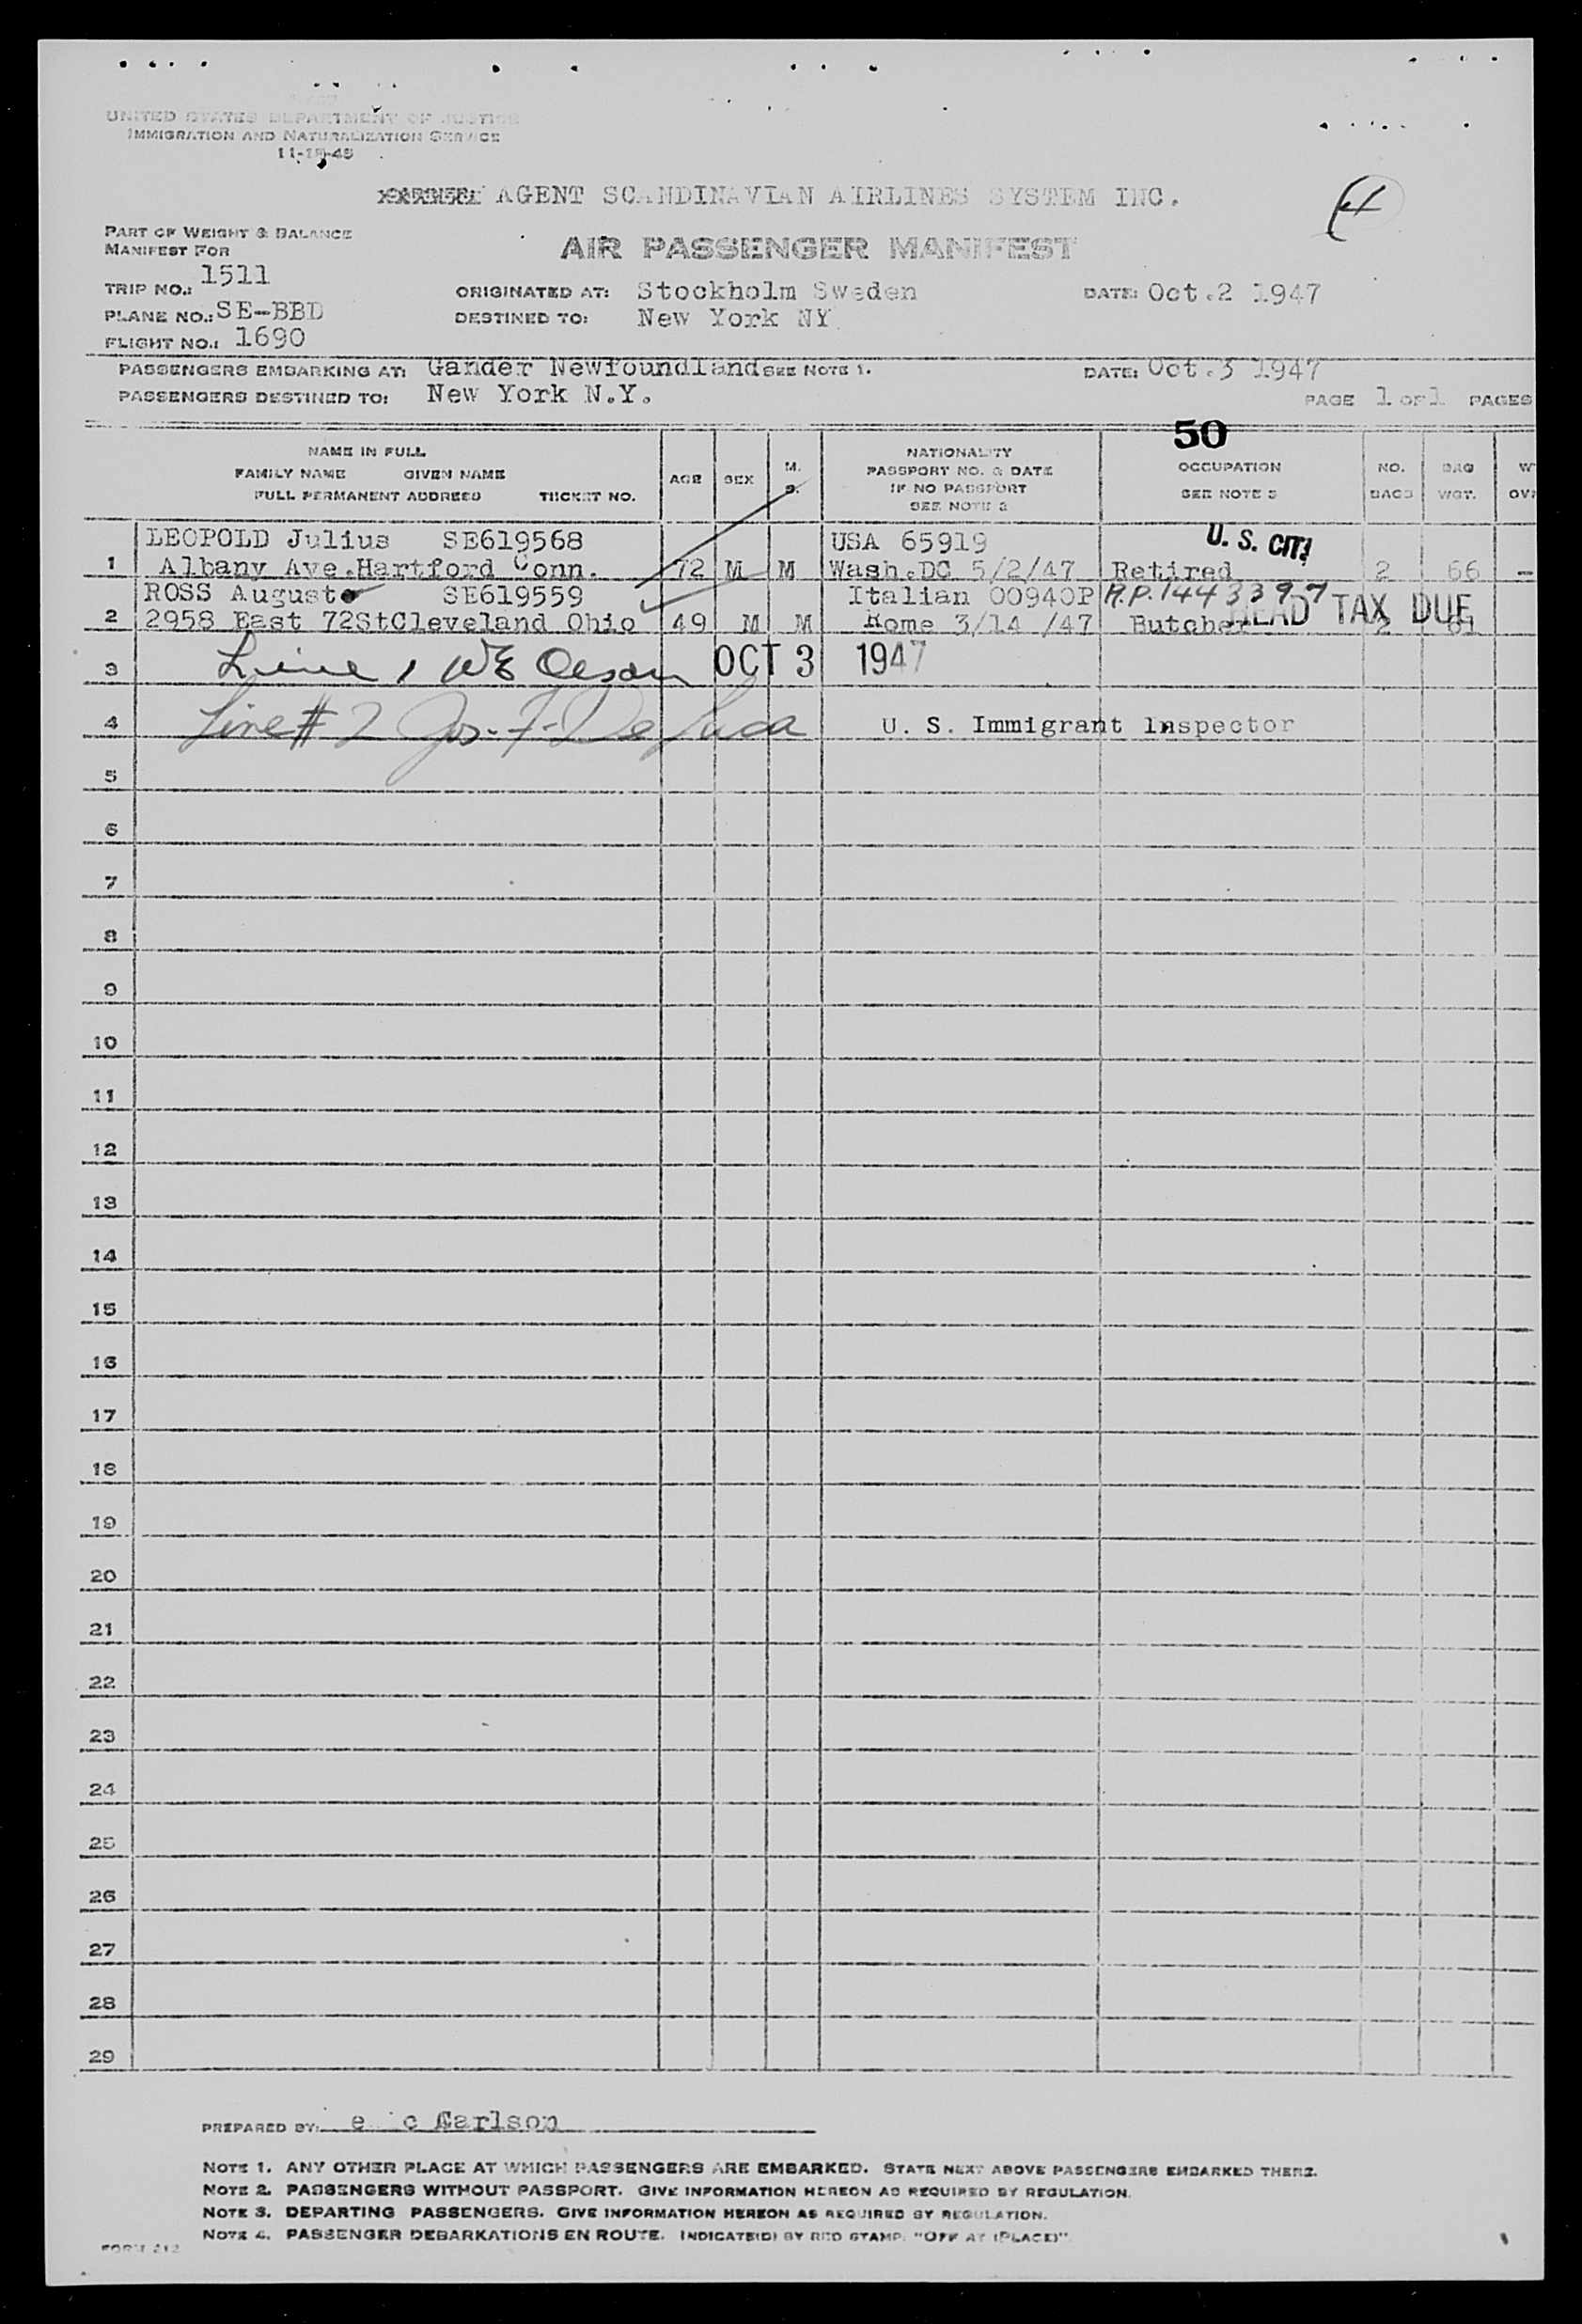 UNITED STATES DEPARTMENT OF JUSTICE
IMMIGRATION AND NATURALIZATION SERVICE
11-15-45
AGENT SCANDINAVIAN AIRLINES SYSTEM INC.
PART OF WEIGHT & BALANCE
MANIFEST FOR
AIR PASSENGER MANIFEST
TRIP NO.: 1511
ORIGINATED AT: Stockholm Sweden DATE: Oct.2 1947
PLANE NO.: SE-BBD
DESTINED TO: New York NY
FLIGHT NO.: 1690
PASSENGERS EMBARKING AT: Gander Newfoundland SEE NOTE 1. DATE: Oct.3 1947
PASSENGERS DESTINED TO: New York N.Y. PAGE 1 OF 1 PAGES
50
NAME IN FULL
FAMILY NAME GIVEN NAME
FULL PERMANENT ADDRESS TICKET NO.
AGE
SEX
M.
S.
NATIONALITY
PASSPORT NO. & DATE
IF NO PASSPORT
SEE NOTE 2
OCCUPATION
SEE NOTE 3
NO.
BAGS
BAG
WGT.
LEOPOLD Julius SE619568 USA 65919 U. S. CIT.
1 Albany Ave.Hartford Conn. 72 M M Wash.DC 5/2/47 Retired 2 66 -
ROSS August SE619559 Italian 00940P R.P. 1443397
2 2958 East 72StCleveland Ohio 49 M M Rome 3/14 /47 Butcher 2 HEAD TAX DUE
3 Line 1 WE Olson OCT 3 1947
4 Line # 2 Jos. F. De Luca U. S. Immigrant Inspector
5
6
7
8
9
10
11
12
13
14
15
16
17
18
19
20
21
22
23
24
25
26
27
28
29
PREPARED BY: e c Carlson
NOTE 1. ANY OTHER PLACE AT WHICH PASSENGERS ARE EMBARKED. STATE NEXT ABOVE PASSENGERS EMBARKED THERE.
NOTE 2. PASSENGERS WITHOUT PASSPORT. GIVE INFORMATION HEREON AS REQUIRED BY REGULATION.
NOTE 3. DEPARTING PASSENGERS. GIVE INFORMATION HEREON AS REQUIRED BY REGULATION.
NOTE 4. PASSENGER DEBARKATIONS EN ROUTE. INDICATE(D) BY RED STAMP. "OFF AT (PLACE)".
FORM 212